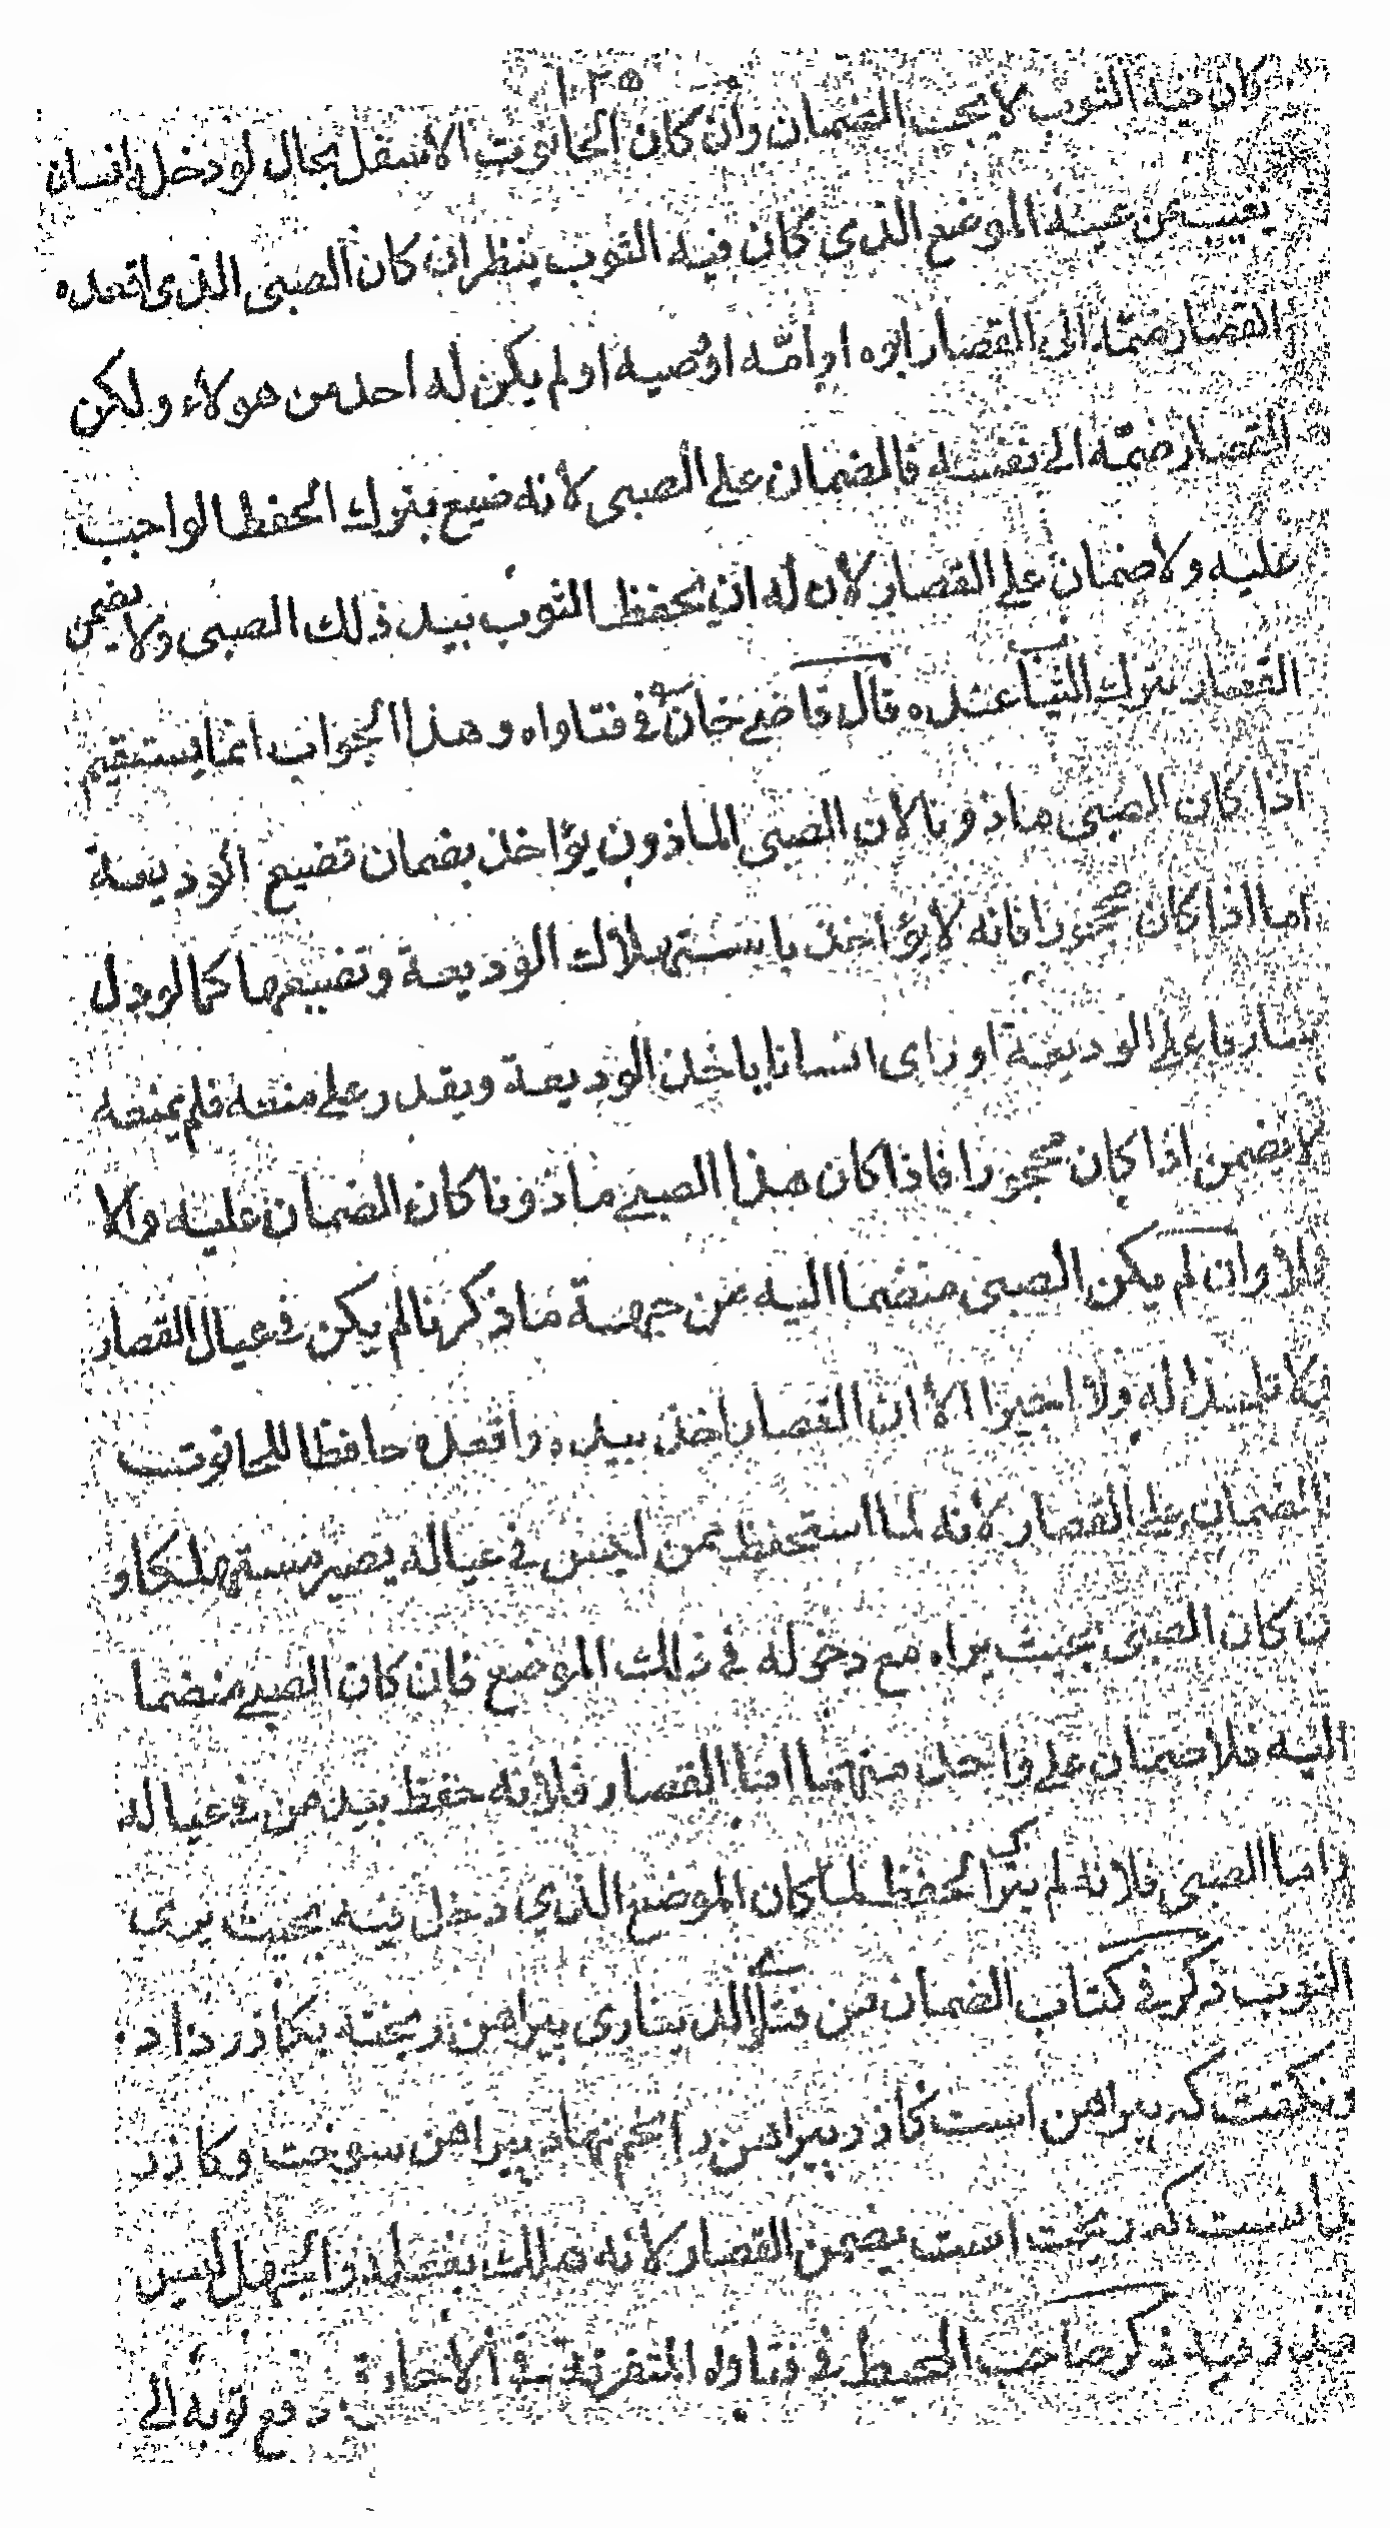 ١٢٥
كان فيه الثوب لا يجب الضمان وان كان الحانوت الاسفل بحال لو دخل انسان
يغيب عن عينه الموضع الذي كان فيه الثوب ينظر ان كان الصبي الذي اقعده
القصار ضمّه الى القصار ابوه او امّه او وصيه او لم يكن له احد من هولاء ولكن
القصار ضمّه الى نفسه فالضمان على الصبي لانه ضيع بترك الحفظ الواجب
عليه ولا ضمان على القصار لان له ان يحفظ الثوب بيد ذلك الصبي ولا يضمن
القصار بترك الثياب عنده قال قاضي خان في فتاواه وهذا الجواب انما يستقيم
اذا كان الصبي ماذونا لان الصبي الماذون يؤاخذ بضمان تضيع الوديعة
اما اذا كان محجورا فانه لا يؤاخذ باستهلاك الوديعة وتضييعها كما لو دل
سارقا على الوديعة او راى انسانا ياخذ الوديعة ويقدر على منعه فلم يمنعه
لا يضمن اذا كان محجورا فاذا كان هذا الصبي ماذونا كان الضمان عليه والا
فلا وان لم يكن الصبي منضما اليه من جهة ما ذكرنا لم يكن في عيال القصار
ولا تلميذا له ولا اجيرا الا ان القصار اخذ بيده واقعده حافظا للحانوت
الضمان على القصار لانه لما استحفظ من ليس في عياله يصير مستهلكا و
ن كان الصبي بحيث يراه مع دخوله في ذلك الموضع فان كان الصبي منضما
اليه فلا ضمان على واحد منهما اما القصار فلانه حفظ بيد من في عياله
واما الصبي فلانه لم يترك الحفظ لما كان الموضع الذي دخل فيه بحيث يرى
الثوب ذكر في كتاب الضمان من الديناري پيراهن ريخته بكاذر داد
ونكفت كه پيراهن است كاذر پيراهن را بخم نهاد پيراهن سوخت وكاذر
است كه ريخت است يضمن القصار لانه هلك بفعله والجهل ليس
ذكر صاحب المحيط في فتاواه المتفرقة الاجارة دفع ثوبه الى